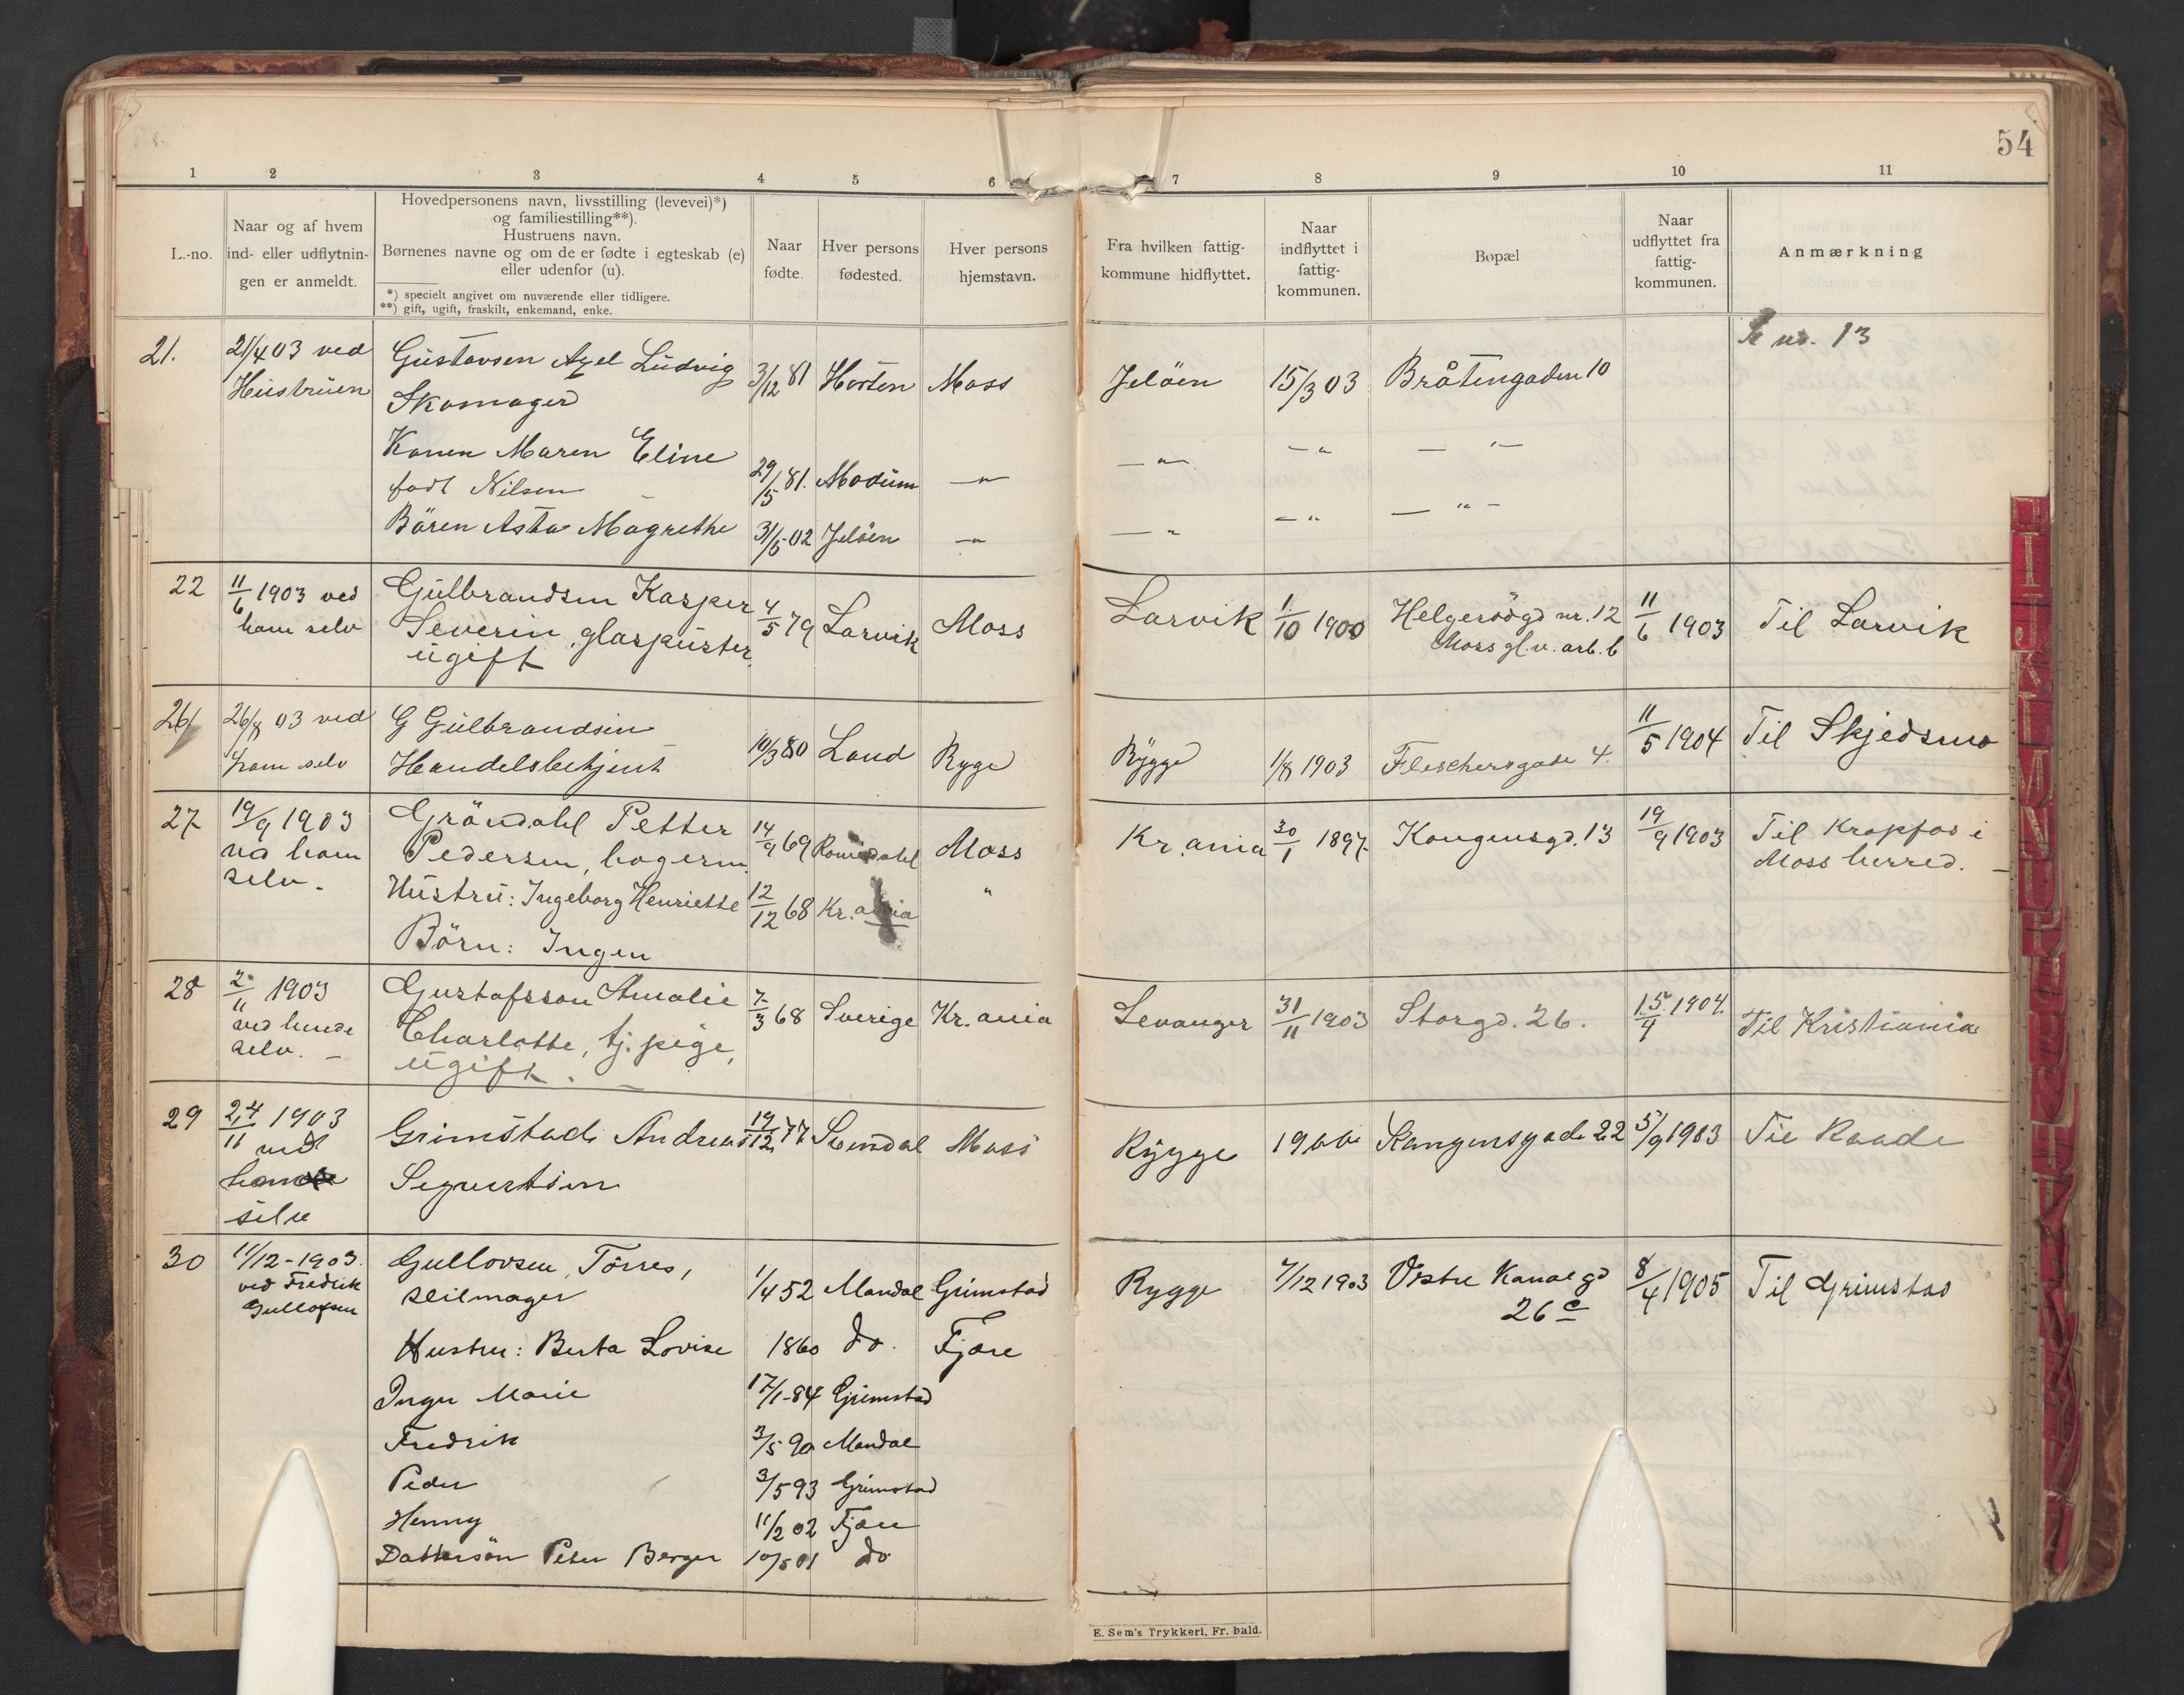 54
1 2 3 4 5 6 7 8 9 10 11
L.-no.
Naar og af hvem
ind- eller udflytnin-
gen er anmeldt.
Hovedpersonens navn, livsstilling (levevei)*)
og familiestilling**).
Hustruens navn.
Børnenes navne og om de er fødte i egteskab (e)
eller udenfor (u).
*) specielt angivet om nuværende eller tidligere.
**) gift, ugift, fraskilt, enkemand, enke.
Naar
fødte.
Hver persons
fødested.
Hver persons
hjemstavn.
Fra hvilken fattig-
kommune hidflyttet.
Naar
indflyttet i
fattig-
kommunen.
Bopæl
Naar
udflyttet fra
fattig-
kommunen.
Anmærkning
Se nr. 13
21. 21/4 03 ved Gustavsen Axel Ludvig 3/12 81 Horten Moss Jelöen 15/3 03 Bråtengaden 10
Hustruen Skomager
Konen Maren Eline — " — — " — " —
født Nilsen 29/5 81. Modum — " —
Bären Asta Magrethe 31/5 02 Jelöen — " — — " — " — " —
22 11/6 1903 ved Gulbrandsen Kasper 4/5 79 Larvik Moss Larvik 1/10 1900 Helgerödgd nr. 12 11/6 1903 Til Larvik
ham selv Severin, glaspuster Moss gl.v. arb. b
ugift
26 26/8 03 ved G Gulbrandsen 10/3 80 Land Ryge Rygge 1/8 1903 Fleschersgade 4. 11/5 1904 Til Skjedsmo
ham selv Handelsbetjent
27 19/9 1903 Gröndahl Petter 14/9 69 Romsdahl Moss Kr.ania 30/1 1897 Kongensgd. 13 19/9 1903 Til Krapfos i
ved ham Pedersen, bagerm. Moss herred. —
selv. Hustru: Ingeborg Henriette 12/12 68 Kr.ania "
Börn: Ingen
28 2/11 1903 Gustafsson Amalie 7/3 68 Sverige Kr.ania Levanger 31/11 1903 Storgd. 26. 15/4 1904. Til Kristiania
ved hende Charlotte, tj. pige,
selv. — ugift. —
29 24/11 1903 Grimstad Andreas 19/12 77 Moss Rygge 1900 Kongensgade 22 5/9 1903 Til Raade
ved
ham
selv
30 11/12-1903. Gullovsen Törres, 1/4 52 Mandal Grimstad Rygge 7/12 1903 Vestre Kanalgd 8/4 1905 Til Grimstad
ved Fredrik seilmager 26 c
Gullofsen
Hustru: Berta Lovise 1860 do. Fjære
Inger Marie 17/1-84 Grimstad
Fredrik 3/5 90 Mandal
Peder 3/5 93 Grimstad
Henny 11/2 02 Fjære
Dattersön Peter Berger 10/5 01 do
E. Sem's Trykkeri, Fr. hald.